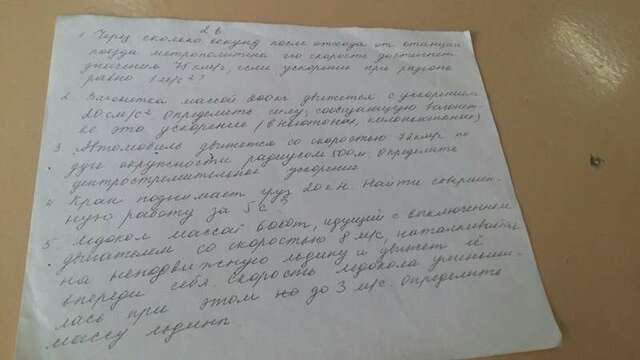 2 в
1 Через сколько секунд после отхода от станции
поезда метрополитена его скорость достигнет
значения 75 км/ч, если ускорение при разгоне
равно 1 м/с²?
2 Вагонетка массой 200 кг движется с ускорением
20 см/с² Определить силу, сообщающую вагонет-
ке это ускорение (в ньютонах, килоньютонах)
3 Автомобиль движется со скоростью 72 км/ч по
дуге окружности радиусом 500 м. Определите
центростремительное ускорение
4 Кран поднимает груз 20 кН. Найти совершен-
ную работу за 5 с?
5 Ледокол массой 6000 т, идущий с выключенным
двигателем со скоростью 8 м/с, наталкивается
на неподвижную льдину и движет её
впереди себя. Скорость ледокола уменьши-
лась при этом до 3 м/с. Определите
массу льдины